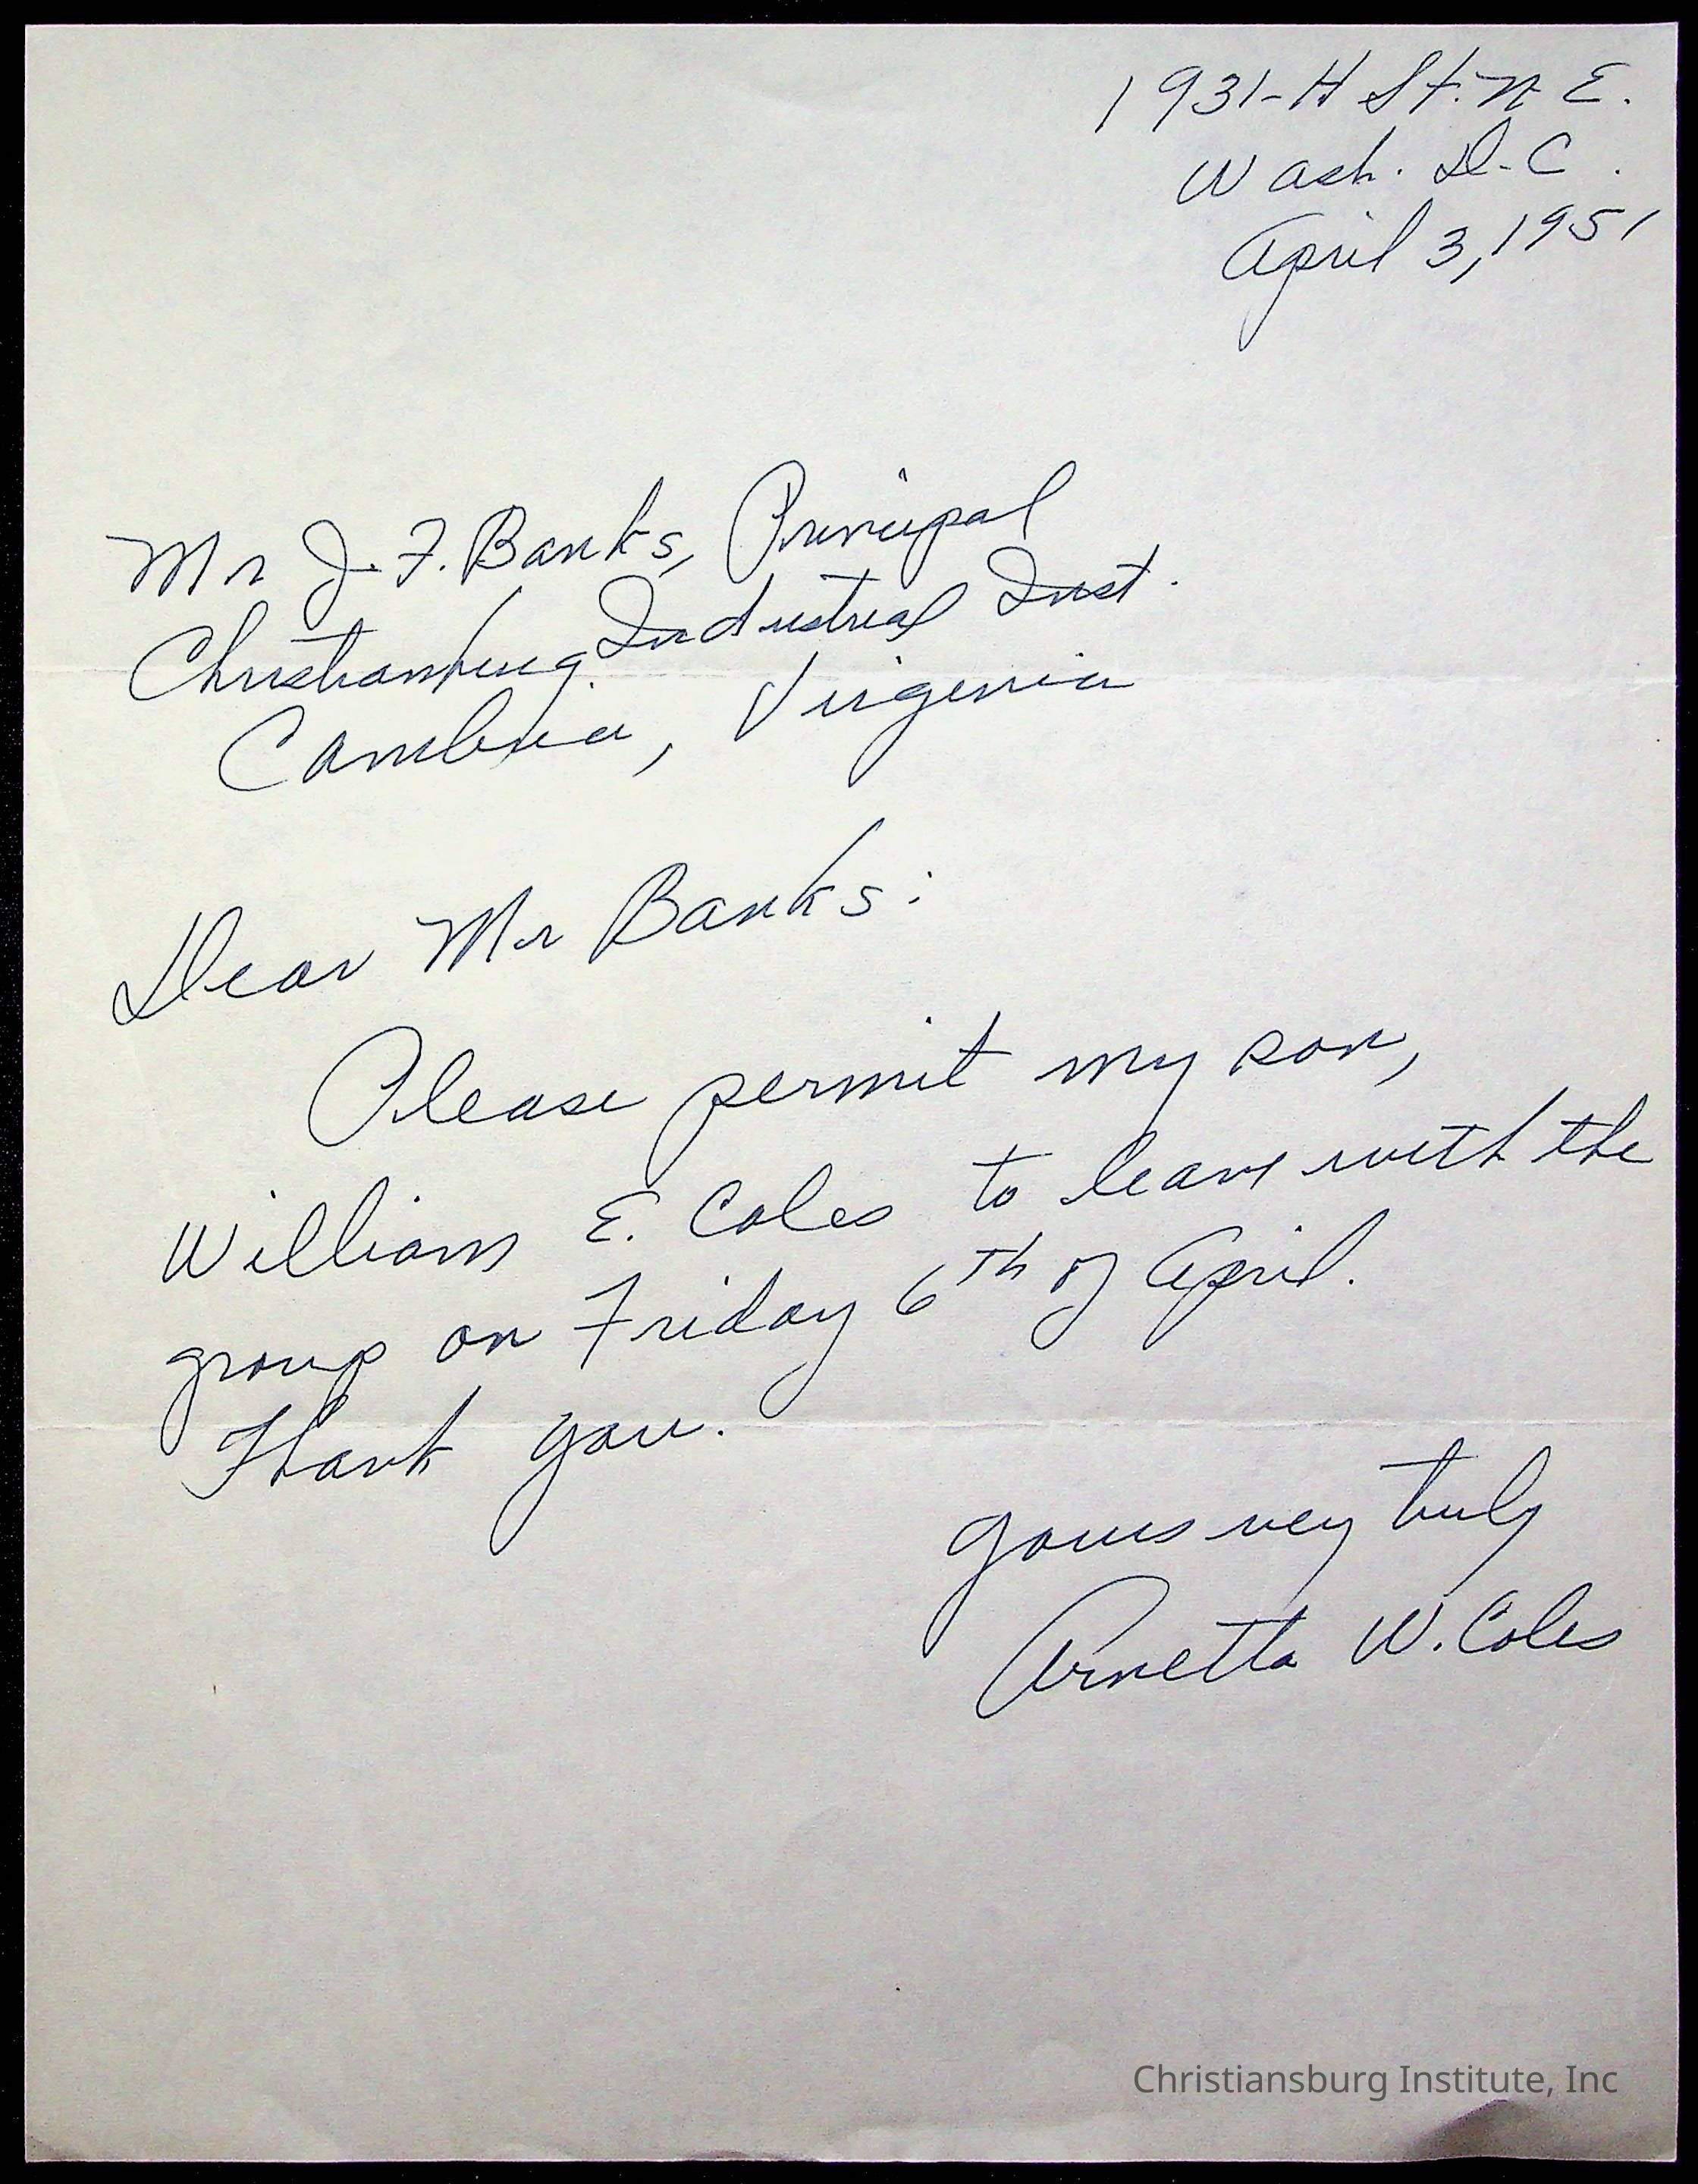 1931-H St. N E.
Wash. D-C.
April 3, 1951
Mr J. F. Banks, Principal
Christiansburg Industrial Inst.
Cambria, Virginia
Dear Mr Banks:
Please permit my son,
William E. Coles to leave with the
group on Friday 6th of April.
Thank you.
Yours very truly
Arnetta W. Coles
Christiansburg Institute, Inc